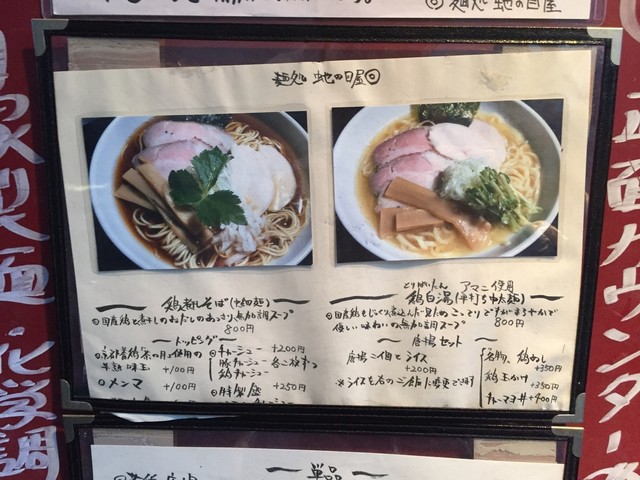 ◎ 麺処 蛇の目屋
麺処 蛇の目屋◎
鶏煮干しそば(中細麺)
◎国産鶏と煮干しのおだしのあっさり無加調スープ
800円
トッピング
半熟味玉 +100円
◎メンマ +100円
◎チャーシュー +200円
豚チャーシュー
鶏チャーシュー
◎特製盛 +250円
とりぱいたん アマニ使用
鶏白湯(平打ち中太麺)
◎国産鶏をじっくり煮込んだ見ためこってりですがまろやかで
優しい味わいの無加調スープ
800円
唐揚セット
唐揚二個とライス
+200円
※ライスを右のご飯に変更できます
名物、鶏めし
+350円
鶏玉かけ
+350円
チャーマヨ丼 +400円
自家製麺・化学調
正面カウンター
単品